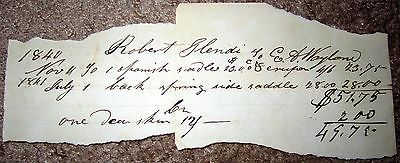 1840 Robert Glendi To C. A. Wayland
Nov 11 To 1 spanish sadle $23.00 crupor 4/6 23.75
1841 July 1 1 back spring side saddle 28.00 28.00
$51.75
Cr
one dear skin 12/— 2.00
49.75